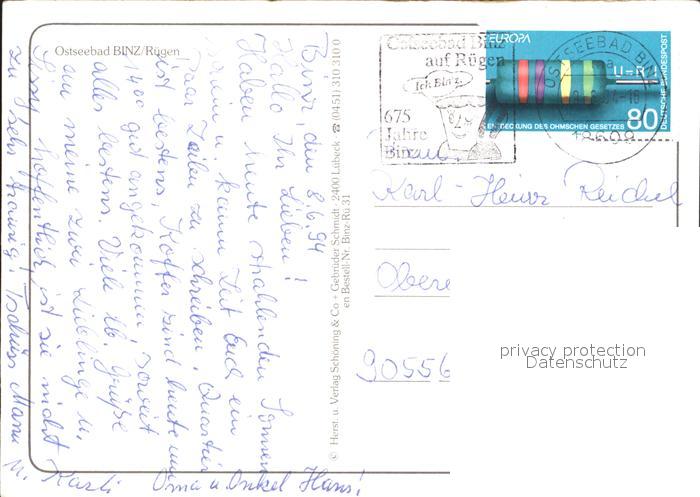 Ostseebad BINZ/Rügen
Binz, den 8.6.94
Hallo Ihr Lieben!
Haben heute strahlenden Sonnen
schein u. kaum Zeit Euch ein
paar Zeilen zu schreiben. Quartier
ist bestens, Koffer sind heute um
14oo gut angekommen, soweit
alles bestens. Viele lb. Grüße
an meine zwei Lieblinge u.
Sissy hoffentlich ist sie nicht
zu sehr traurig! Tschüss Mama
u. Karli Oma u. Onkel Hans!
© Herst. u. Verlag Schöning & Co + Gebrüder Schmidt · 2400 Lübeck · ☎ (0451) 310 310 0
en Bestell-Nr. Binz-Rü 31
Ostseebad Binz
auf Rügen
Ich Binz.
675
Jahre
Binz
OSTSEEBAD BINZ
a
18609
EUROPA
U=R·I
ENTDECKUNG DES OHMSCHEN GESETZES
80
DEUTSCHE BUNDESPOST
Karl-Heinz Reichel
Obere
90556
privacy protection
Datenschutz